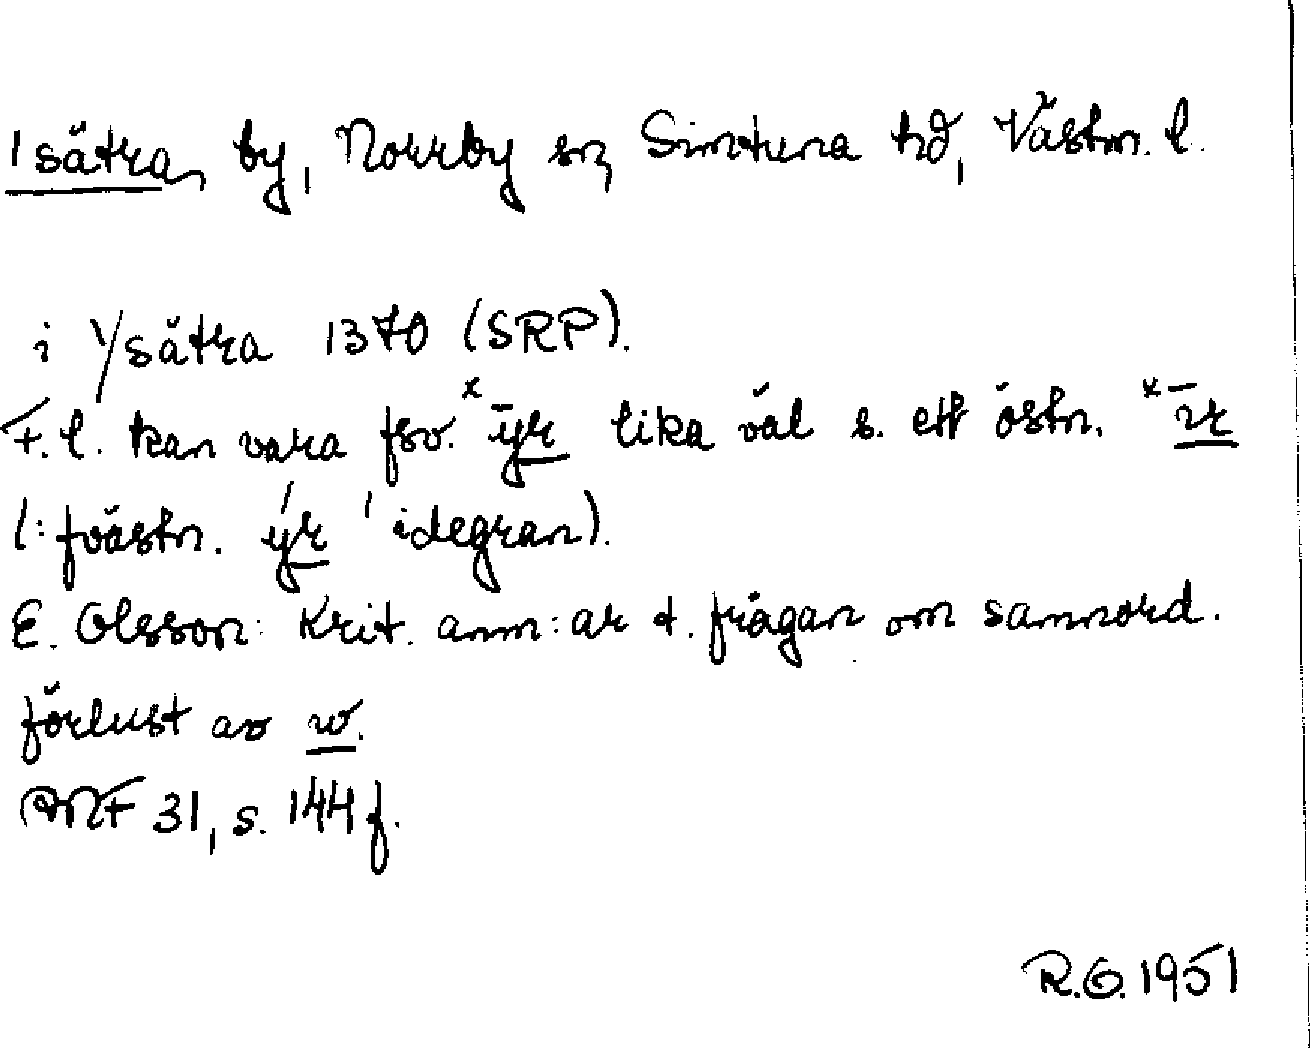 Isätra, by, Norrby sn, Simtuna hd, Västm. l.
i Ysätra 1370 (SRP).
F.l. kan vara fsv. *ȳr lika väl s. ett östn. *īr
(: fvästn. ýr 'idegran).
E. Olsson: Krit. anm:ar t. frågan om samnord.
förlust av w.
ANF 31, s. 144 f.
R.O. 1951